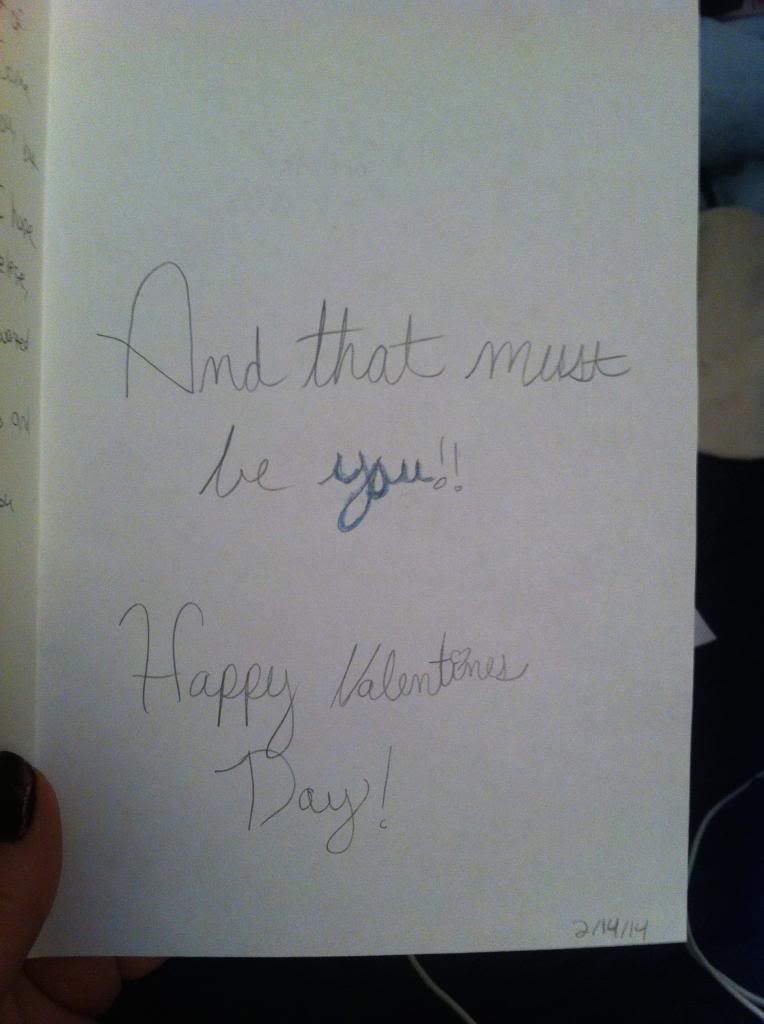 And that must
be you!!
Happy Valentines
Day!
2/14/14
hope